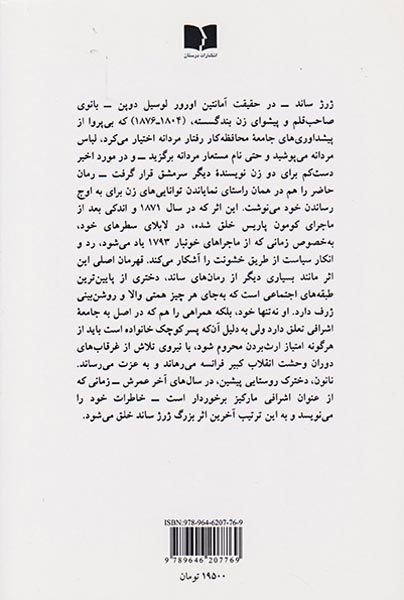 انتشارات دوستان
ژرژ ساند ــ در حقیقت آمانتین اورور لوسیل دوپن ــ بانوی
صاحب‌قلم و پیشوای زن بندگسسته، (۱۸۰۴-۱۸۷۶) که بی‌پروا از
پیشداوری‌های جامعهٔ محافظه‌کار رفتار مردانه اختیار می‌کرد، لباس
مردانه می‌پوشید و حتی نام مستعار مردانه برگزید ــ و در مورد اخیر
دست‌کم برای دو زن نویسندهٔ دیگر سرمشق قرار گرفت ــ رمان
حاضر را هم در همان راستای نمایاندن توانایی‌های زن برای به اوج
رساندن خود می‌نوشت. این اثر که در سال ۱۸۷۱ و اندکی بعد از
ماجرای کومون پاریس خلق شده، در لابلای سطرهای خود،
به‌خصوص زمانی که از ماجراهای خونبار ۱۷۹۳ یاد می‌شود، رد و
انکار سیاست از طریق خشونت را آشکار می‌کند. قهرمان اصلی این
اثر مانند بسیاری دیگر از رمان‌های ساند، دختری از پایین‌ترین
طبقه‌های اجتماعی است که به‌جای هر چیز همتی والا و روشن‌بینی
ژرف دارد. او نه‌تنها خود، بلکه همراهی را هم که در اصل به جامعهٔ
اشرافی تعلق دارد ولی به دلیل آن‌که پسر کوچک خانواده است باید از
هرگونه امتیاز ارث‌بردن محروم شود، با نیروی تلاش از غرقاب‌های
دوران وحشت انقلاب کبیر فرانسه می‌رهاند و به عزت می‌رساند.
نانون، دخترک روستایی پیشین، در سال‌های آخر عمرش ــ زمانی که
از عنوان اشرافی مارکیز برخوردار است ــ خاطرات خود را
می‌نویسد و به این ترتیب آخرین اثر بزرگ ژرژ ساند خلق می‌شود.
ISBN: 978-964-6207-76-9
9 789646 207769
۱۹۵۰۰ تومان